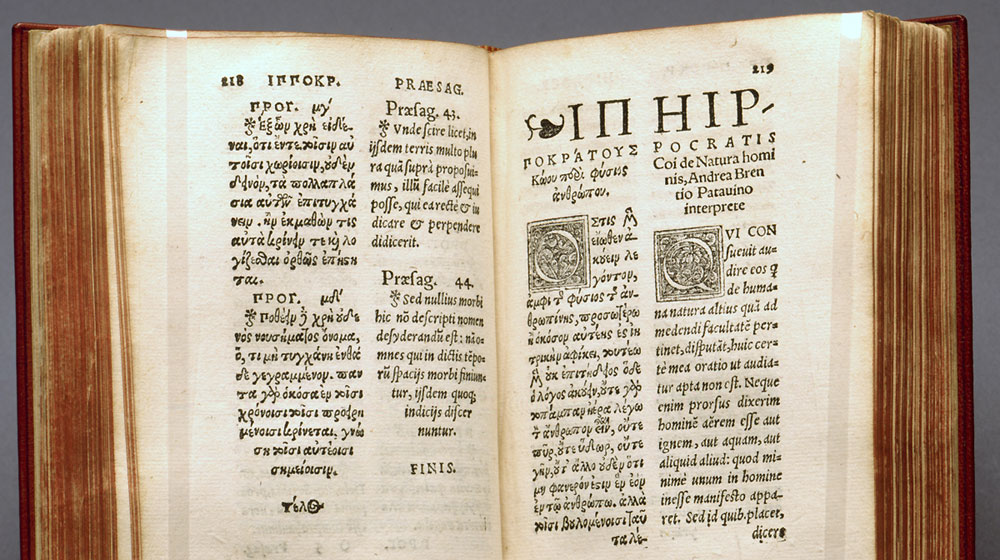 218 ΙΠΠΟΚΡ.
ΠΡΟΓ. μγ´
Ἐξ ὧν χρὴ εἰδέ-
ναι, ὅτι ἐν τε
τοῖσι χωρίοισιν, οὐδὲν
τὰ πολλαπλά
σια αὐτῶν ἐπιτυγχά
νειν. ἢν ἐκμαθὼν τὶς
αὐτὰ κρίνειν τε καὶ λο
γίζεσθαι ὀρθῶς ἐπίςη
ται.
ΠΡΟΓ. μδ´
Ποθέειν δὲ χρὴ οὐδε
νὸς νουσήματος ὄνομα,
ὅ, τι μὴ τυγχάνῃ ἐνθά
δε γεγραμμένον. παν
τα γὰρ ὁκόσα ἐν τοῖσι
χρόνοισι τοῖσι προειρη
μένοισι κρίνεται, γνώ
ση τοῖσι αὐτέοισι
σημείοισιν.
τέλος
PRAESAG.
Præsag. 43.
Vnde scire licet, in
ijsdem terris multo plu
ra quã suprà proposui-
mus, illũ facilè assequi
posse, qui ea rectè & iu
dicare & perpendere
didicerit.
Præsag. 44.
Sed nullius morbi
hic nõ descripti nomen
desyderandũ est: nã o-
mnes qui in dictis tẽpo-
rũ spacijs morbi finiun-
tur, ijsdem quoq;
indicijs discer
nuntur.
FINIS.
219
ΙΠ
ΠΟΚΡΑΤΟΥΣ
Κώου περὶ φύσιος
ἀνθρώπου.
ΟΣΤΙΣ μὲν
εἰωθεν ἀ
κούειν λε
γόντων,
ἀμφὶ τ φύσιος τ ἀν-
θρωπίνης, προσωτέρω
ὁκόσον αὐτέης ἐς ἰη
τρικὴν ἀφίκει, τουτέω
μὲν οὐκ ἐπιτήδειος ὅδε
ὁ λόγος ἀκούειν, οὔτε γὰρ
τὸ πάμπαν ἠέρα λέγω
τ ἄνθρωπον εἶναι, οὔτε
πῦρ, οὔτε ὕδωρ, οὔτε
γῆν, οὔτ ἄλλο οὐδὲν ὅτι
μὴ φανερόν ἐςιν ἓν ἐὸν
ἐν τῷ ἀνθρώπω. ἀλλὰ
τοῖσι βουλομένοισι ταῦ
τα λέ-
HIP-
POCRATIS
Coi de Natura homi
nis, Andrea Bren
tio Patauino
interprete
QVI CON
sueuit au-
dire eos q
de huma-
na natura altius quã ad
medendi facultatẽ per-
tinet, disputãt, huic cer-
tè mea oratio ut audia-
tur apta non est. Neque
enim prorsus dixerim
hominẽ aërem esse aut
ignem, aut aquam, aut
aliquid aliud: quod mi-
nimè unum in homine
inesse manifesto appa-
ret. Sed id quib. placet,
dicere